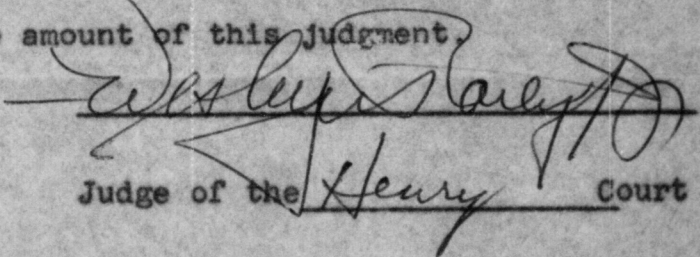 amount of this judgment.
Wesley
Judge of the Henry Court